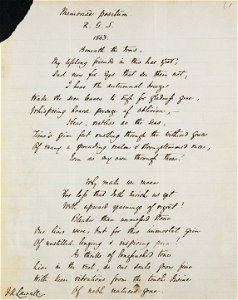 Memoriae positum.
R. G. S.
1863.
Beneath the trees,
My lifelong friends in this dear spot,
Sad now for eyes that see them not,
I hear the autumnal breeze
Wake the dry leaves to sigh for gladness gone,
Whispering hoarse presage of oblivion,
Hear, restless as the seas,
Time's grim feet rustling through the withered grace
Of many a spreading realm & strong-stemmed race,
Even as my own through these.
Why make we moan
For loss that doth enrich us yet
With upward yearnings of regret?
Bleaker than unmossed stone
Our lives were but for this immortal gain
Of unstilled longing & inspiring pain!
As thrills of long-hushed tone
Live in the viol, so our souls grow fine
With keen vibrations from the touch divine
Of noble natures gone.
J. R. Lowell